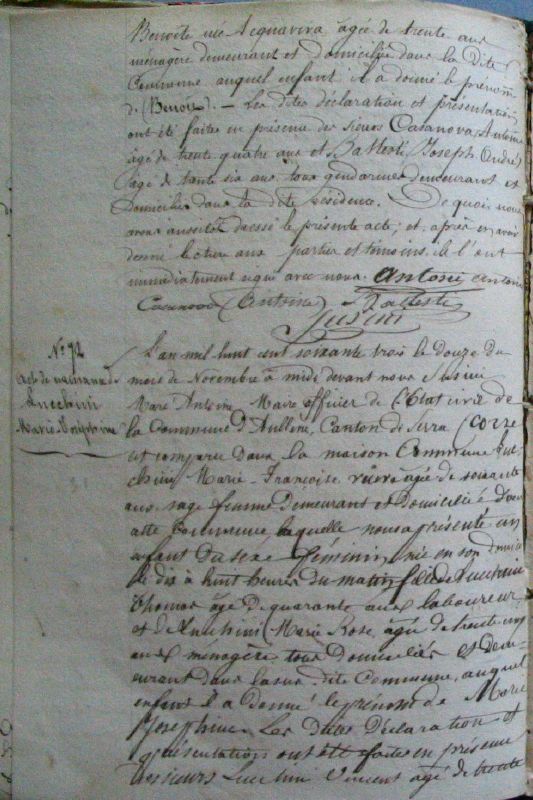 Benoite née Acquaviva âgée de trente ans
ménagère demeurant et domiciliée dans la dite
Commune auquel enfant il a donné le prénom
de (Benoit). — Les dites déclaration et présentation
ont été faites en présence des sieurs Casanova Antoine
âgé de trente quatre ans et Battesti Joseph André
âgé de trente six ans tous gendarmes demeurant et
Domiciliés dans la dite résidence. De quoi nous
avons aussitôt dressé le présente acte; et après en avoir
donné lecture aux parties et témoins ils l'ont
immédiatement signé avec nous Antoni Antoine
Casanova (Antoine) Battesti
Susini
No 72
Acte de naissance de
Lucchini
Marie Josephine
L'an mil huit cent soixante trois le douze du
mois de Novembre à midi devant nous Susini
Marc Antoine Maire officier de l'Etat civil de
la Commune d'Aullène, Canton de Serra (Corse
est comparu Dans la maison Commune Luc-
chini Marie Françoise veuve âgée de soixante
ans sage femme Demeurant et Domiciliée dans
cette Commune laquelle nous a présenté un
enfant Du sexe féminin née en son domicile
le dix à huit heures du matin fille de Lucchini
Thomas âgé De quarante ans laboureur
et de Lucchini (Marie Rose, âgée de trente cinq
ans ménagère tous Domiciliés et Deme-
urant dans la sus dite Commune, auquel
enfant il a Donné le prénom de Marie
Josephine. Les dites Déclaration et
présentation ont été faites en présence
des sieurs Lucchini Vincent âgé de trente